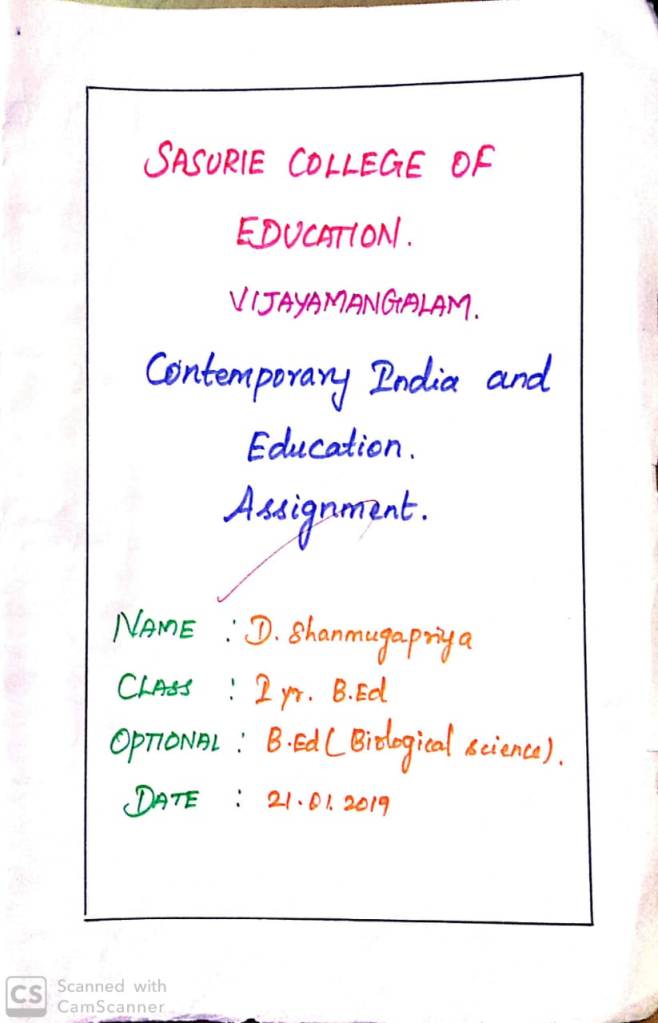 SASURIE COLLEGE OF
EDUCATION.
VIJAYAMANGALAM.
Contemporary India and
Education.
Assignment.
NAME : D. Shanmugapriya
CLASS : I yr. B.Ed
OPTIONAL : B.Ed ( Biological science).
DATE : 21.01.2019
CS Scanned with
CamScanner